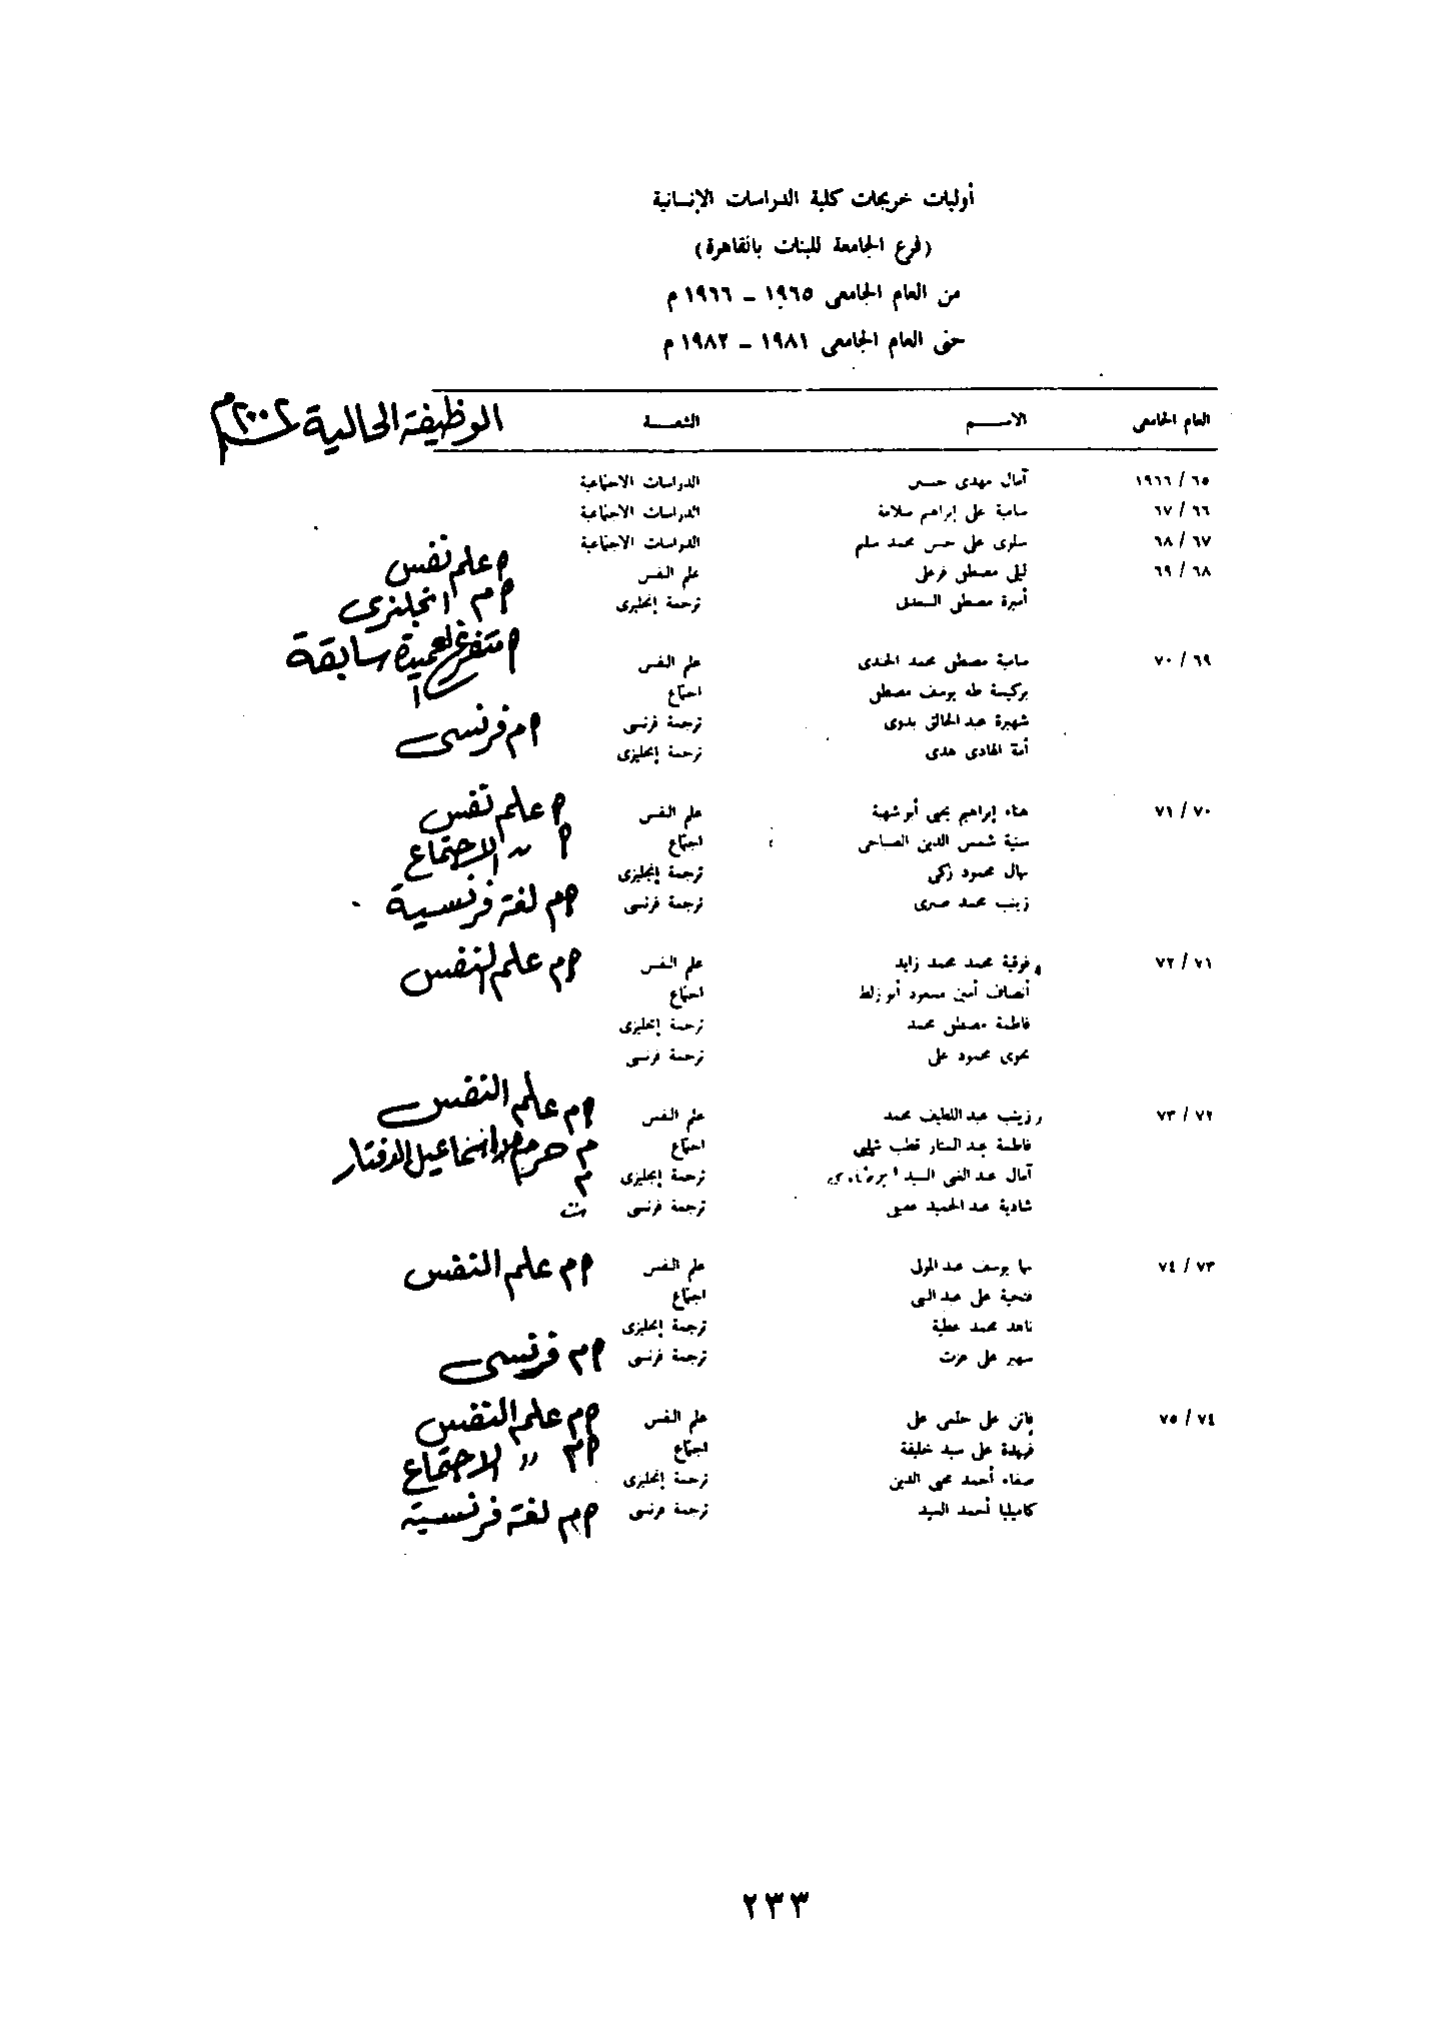 أوليات خريجات كلية الدراسات الإنسانية
(فرع الجامعة للبنات بالقاهرة)
من العام الجامعى ١٩٦٥ – ١٩٦٦ م
حتى العام الجامعى ١٩٨١ – ١٩٨٢ م
العام الجامعى الاســـم الشعبـــة الوظيفة الحالية ٢٠٠٢م
٦٥ / ١٩٦٦ آمال مهدى حسن الدراسات الاجتماعية
٦٦ / ٦٧ سامية على إبراهيم سلامة الدراسات الاجتماعية
٦٧ / ٦٨ سلوى على حسن محمد سليم الدراسات الاجتماعية
٦٨ / ٦٩ ليلى مصطفى فرغلى علم النفس م علم نفس
أميرة مصطفى ترجمة إنجليزى م م انجليزى
٦٩ / ٧٠ سامية مصطفى محمد علم النفس م متفرغ عميدة سابقة
بركيسة طه يوسف مصطفى اجتماع
شهيرة عبد الخالق بدوى ترجمة فرنسى م م فرنسى
أمة الهادى هدى ترجمة إنجليزى
٧٠ / ٧١ هناء إبراهيم يحيى أبو شهبة علم النفس م علم نفس
سنية شمس الدين الصباحى اجتماع م " الاجتماع
نهال محمود زكى ترجمة إنجليزى
زينب محمد صبرى ترجمة فرنسى م م لغة فرنسية
٧١ / ٧٢ فوقية محمد محمد زايد علم النفس م م علم النفس
أنصاف أمين مسعود أبو زلط اجتماع
فاطمة مصطفى محمد ترجمة إنجليزى
نجوى محمود على ترجمة فرنسى
٧٢ / ٧٣ زينب عبد اللطيف محمد علم النفس م م علم النفس
فاطمة عبد الستار قطب شلبى اجتماع م حرم اسماعيل الدفتار
آمال عبد الغنى السيد ترجمة إنجليزى م
شادية عبد الحميد ترجمة فرنسى
٧٣ / ٧٤ مها يوسف عبد المولى علم النفس م م علم النفس
فتحية على عبد النبى اجتماع
ناهد محمد عطية ترجمة إنجليزى
سهير على عزت ترجمة فرنسى م م فرنسى
٧٤ / ٧٥ فاتن على حلمى على علم النفس م م علم النفس
فريدة على سيد خليفة اجتماع م م " الاجتماع
صفاء أحمد محيى الدين ترجمة إنجليزى
كاميليا أحمد السيد ترجمة فرنسى م م لغة فرنسية
٢٣٣